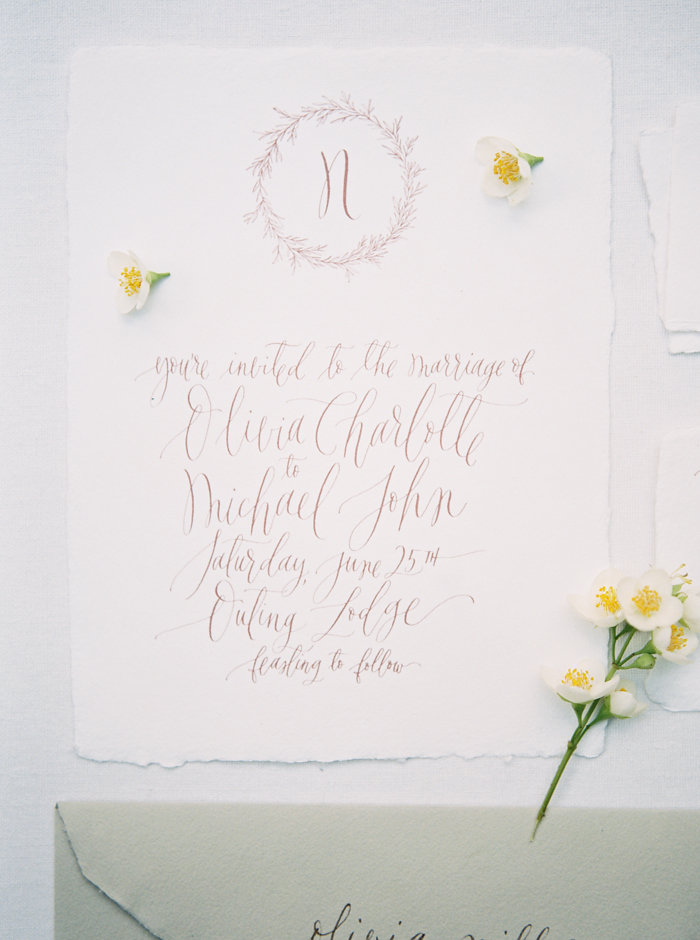 N
you're invited to the marriage of
Olivia Charlotte
to
Michael John
Saturday, June 25TH
Outing Lodge
feasting to follow
Olivia